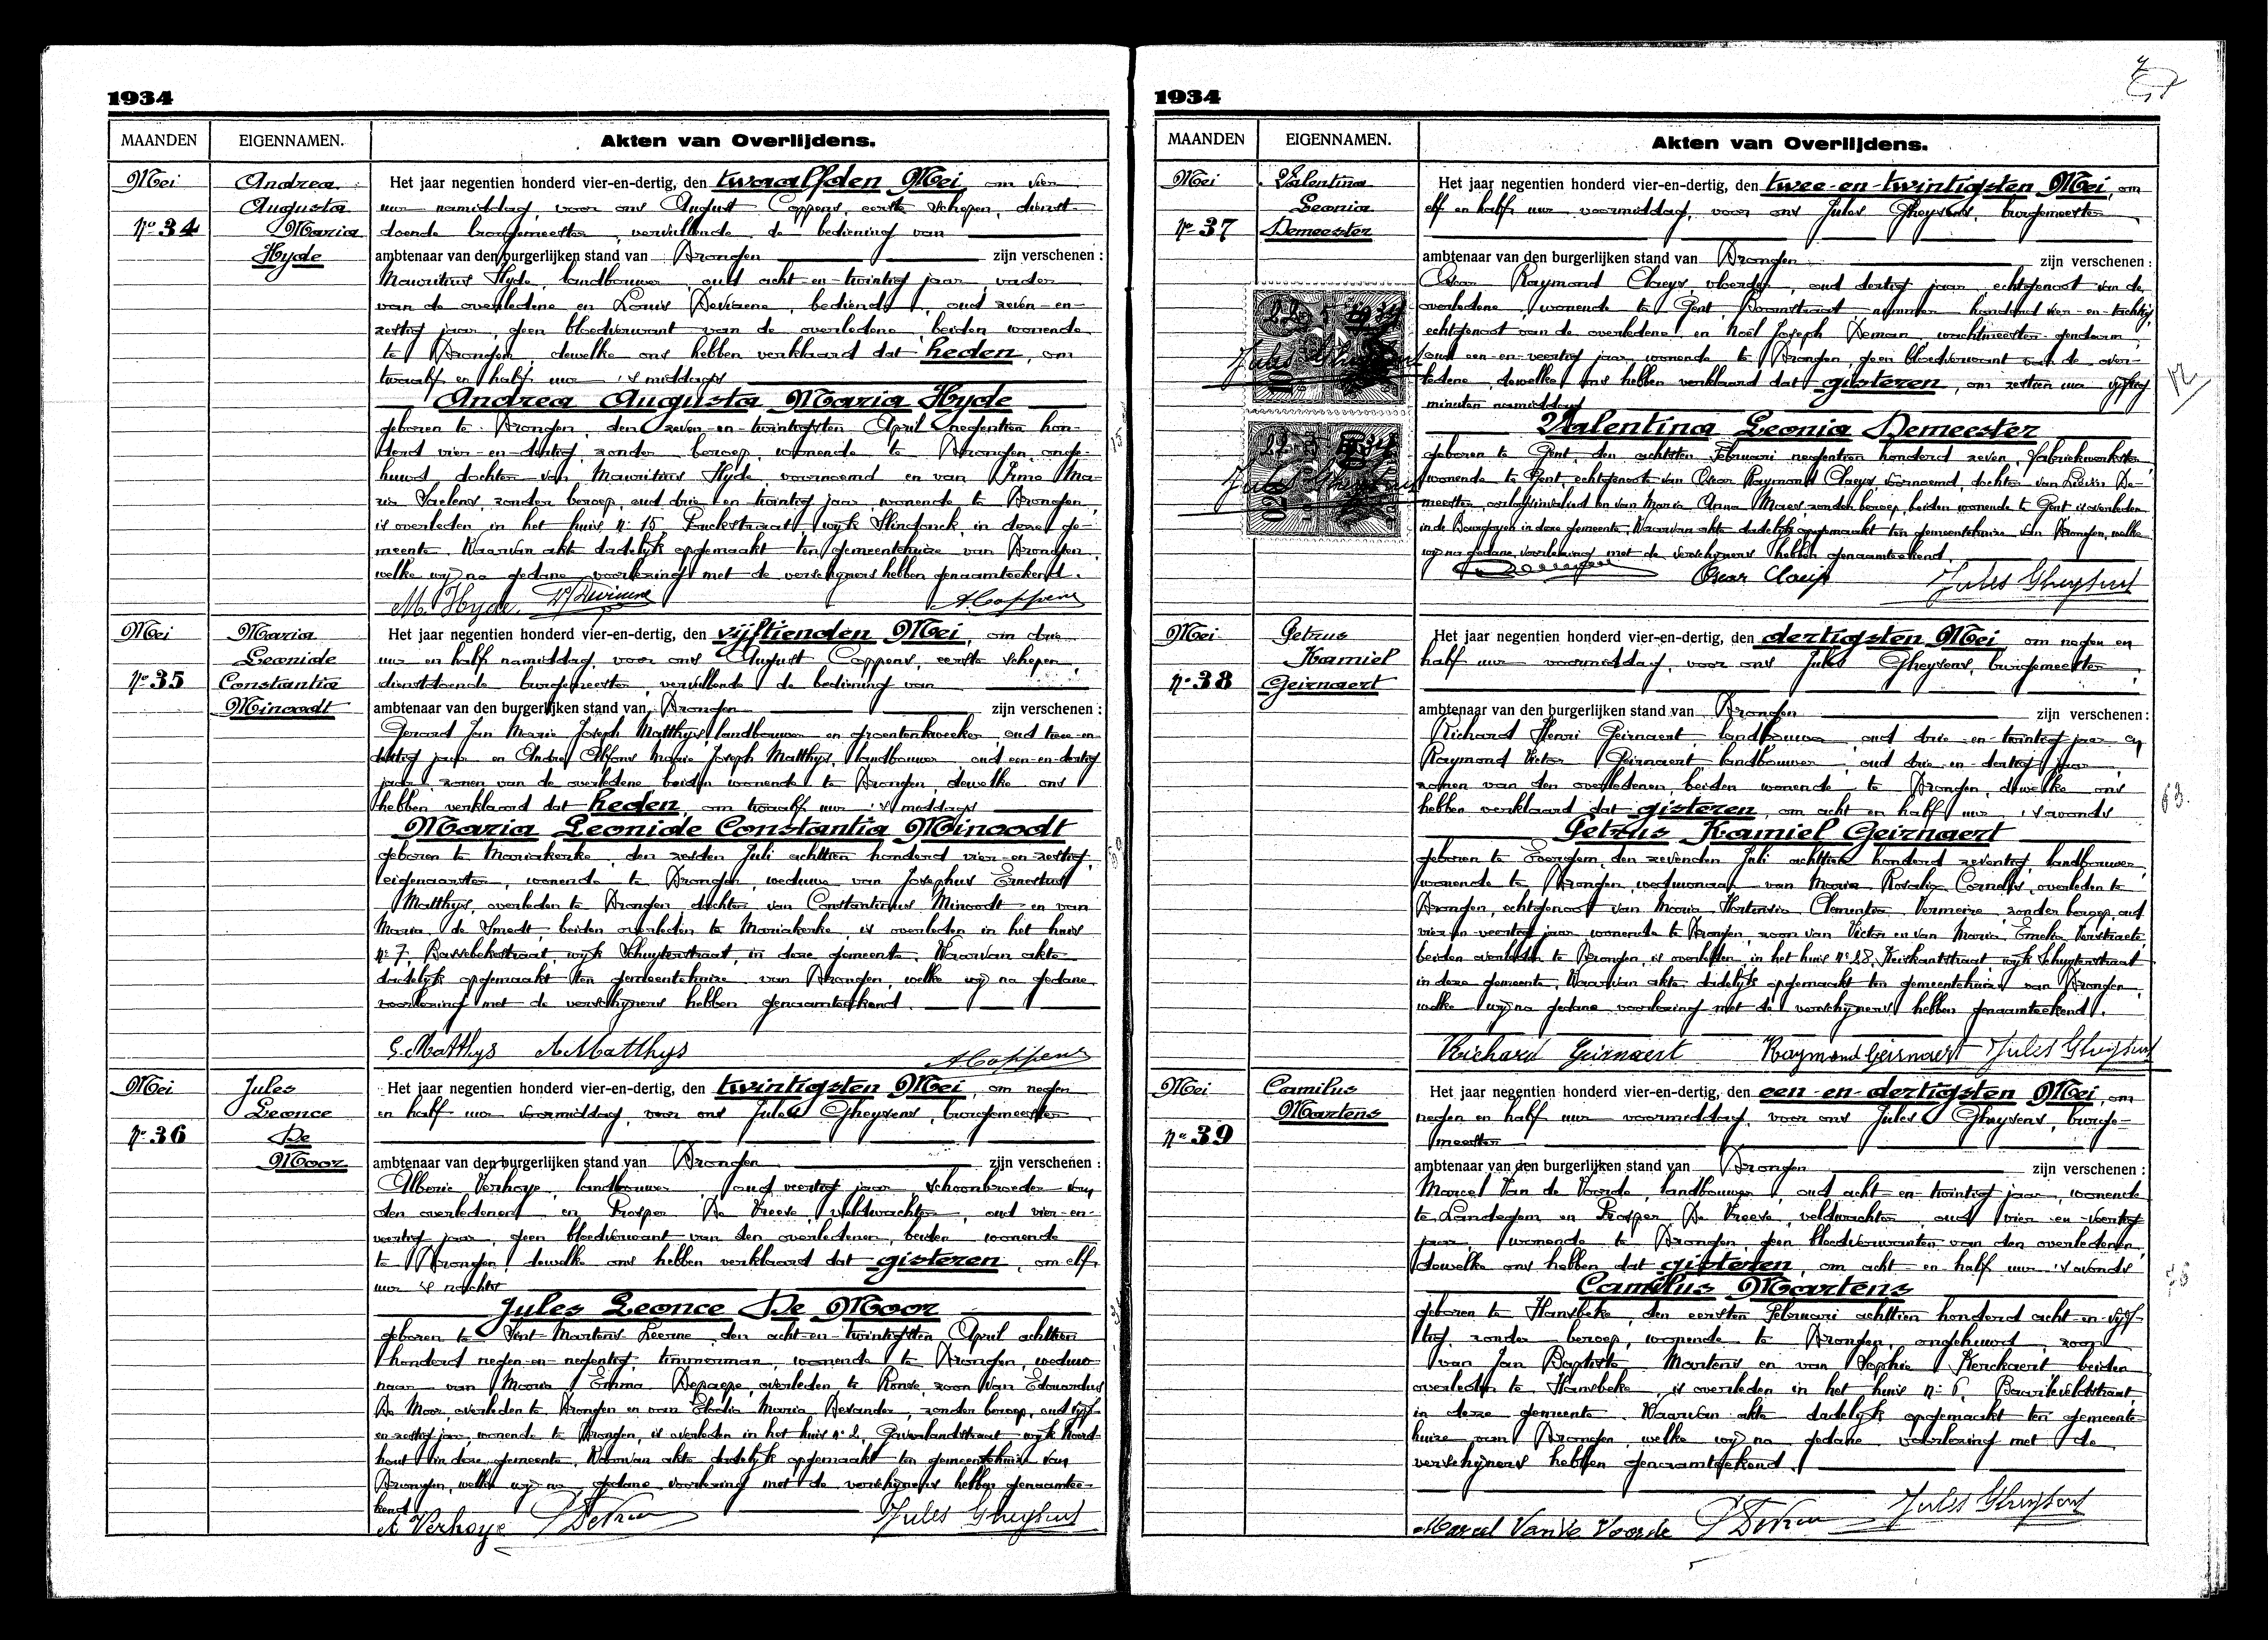 1934
MAANDEN EIGENNAMEN. Akten van Overlijdens.
Mei
No 34
Andrea
Augusta
Maria
Hyde
Het jaar negentien honderd vier-en-dertig, den twaalfden Mei, om vier
uur namiddag, voor ons August Coppens, eerste schepen, dienst-
doende burgemeester, vervullende de bediening van
ambtenaar van den burgerlijken stand van Drongen zijn verschenen :
Mauritius Hyde, landbouwer, oud acht-en-twintig jaar, vader
van de overledene en Louis Deviaene, bediende, oud zeven-en-
zestig jaar, geen bloedverwant van de overledene, beiden wonende
te Drongen, dewelke ons hebben verklaard dat heden, om
twaalf en half uur 's middags
Andrea Augusta Maria Hyde
geboren te Drongen, den zeven-en-twintigsten April negentien hon-
derd vier-en-dertig, zonder beroep, wonende te Drongen, onge-
huwd, dochter van Mauritius Hyde, voornoemd en van Irma Ma-
ria Saelens, zonder beroep, oud drie-en-twintig jaar, wonende te Drongen,
is overleden in het huis No 15, straat, wijk in deze ge-
meente. Waarvan akte dadelijk opgemaakt ten gemeentehuize van Drongen,
welke wij na gedane voorlezing met de verschijners hebben genaamteekend.
M. Hyde A. Coppens
Mei
No 35
Maria
Leonide
Constantia
Minoodt
Het jaar negentien honderd vier-en-dertig, den vijftienden Mei, om drie
uur en half namiddag, voor ons August Coppens, eerste schepen,
dienstdoende burgemeester, vervullende de bediening van
ambtenaar van den burgerlijken stand van Drongen zijn verschenen :
Gerard Jan Marie Joseph Matthys, landbouwer en groentenkweeker, oud twee-en-
dertig jaar en André Alfons Marie Joseph Matthys, landbouwer, oud een-en-dertig
jaar, zonen van de overledene beiden wonende te Drongen, dewelke ons
hebben verklaard dat heden, om twaalf uur 's middags
Maria Leonide Constantia Minoodt
geboren te Mariakerke, den zesden Juli achttien honderd vier-en-zestig,
eigenaarster, wonende te Drongen, weduwe van Josephus Ernestus
Matthys, overleden te Drongen, dochter van Constantinus Minoodt en van
Maria de Smedt, beiden overleden te Mariakerke, is overleden in het huis
No 7, Bassebekestraat, wijk Schuyterstraat, in deze gemeente. Waarvan akte
dadelijk opgemaakt ten gemeentehuize van Drongen, welke wij na gedane
voorlezing met de verschijners hebben genaamteekend.
G. Matthys A. Matthys A. Coppens
Mei
No 36
Jules
Leonce
De
Moor
Het jaar negentien honderd vier-en-dertig, den twintigsten Mei, om negen
en half uur voormiddag, voor ons Jules Gheysens, burgemeester
ambtenaar van den burgerlijken stand van Drongen zijn verschenen :
Alberic Verhoye, landbouwer, oud veertig jaar, schoonbroeder van
den overledenen en Prosper De Vreese, veldwachter, oud vier-en-
veertig jaar, geen bloedverwant van den overledenen, beiden wonende
te Drongen, dewelke ons hebben verklaard dat gisteren, om elf
uur 's nachts
Jules Leonce De Moor
geboren te Sint-Martens-Leerne, den acht-en-twintigsten April achttien
honderd negen-en-negentig, timmerman, wonende te Drongen, weduw-
naar van Maria Emma Depaepe, overleden te Ronse, zoon van Edouardus
De Moor, overleden te Drongen en van Elodia Maria Devander, zonder beroep, oud vijf-
en-zestig jaar, wonende te Drongen, is overleden in het huis No 2, Gaverlandstraat wijk Noord-
hout in deze gemeente. Waarvan akte dadelijk opgemaakt ten gemeentehuize van
Drongen, welke wij na gedane voorlezing met de verschijners hebben genaamtee-
kend.
A Verhoye Jules Gheysens
1934
MAANDEN EIGENNAMEN. Akten van Overlijdens.
Mei
No 37
Valentina
Leonia
Demeester
Het jaar negentien honderd vier-en-dertig, den twee-en-twintigsten Mei, om
elf en half uur voormiddag, voor ons Jules Gheysens, burgemeester
ambtenaar van den burgerlijken stand van Drongen zijn verschenen :
Oscar Raymond Claeys, vloerder, oud dertig jaar, echtgenoot van de
overledene, wonende te Gent, straat, nummer honderd vier-en-tachtig,
echtgenoot van de overledene en Noël Joseph Deman, wachtmeester-gendarm,
oud een-en-veertig jaar, wonende te Drongen, geen bloedverwant van de over-
ledene, dewelke ons hebben verklaard dat gisteren, om zestien uur vijftig
minuten namiddag
Valentina Leonia Demeester
geboren te Gent, den achtsten Februari negentien honderd zeven, fabriekwerkster,
wonende te Gent, echtgenoote van Oscar Raymond Claeys, voornoemd, dochter van Lievin De-
meester, oorlogsinvalied en van Maria Anna Maes, zonder beroep, beiden wonende te Gent is overleden
in de Bourgoyen in deze gemeente. Waarvan akte dadelijk opgemaakt ten gemeentehuize van Drongen, welke
wij na gedane voorlezing met de verschijners hebben genaamteekend.
Oscar Claeys Jules Gheysens
Mei
No 38
Petrus
Kamiel
Geirnaert
Het jaar negentien honderd vier-en-dertig, den dertigsten Mei om negen en
half uur voormiddag, voor ons Jules Gheysens, burgemeester,
ambtenaar van den burgerlijken stand van Drongen zijn verschenen :
Richard Henri Geirnaert, landbouwer, oud drie-en-twintig jaar en
Raymond Victor Geirnaert, landbouwer, oud drie-en-dertig jaar,
zonen van den overledenen, beiden wonende te Drongen, dewelke ons
hebben verklaard dat gisteren, om acht en half uur 's avonds
Petrus Kamiel Geirnaert
geboren te Evergem, den zevenden Juli achttien honderd zeventig, landbouwer,
wonende te Drongen, weduwnaar van Maria Rosalia Cornelis, overleden te
Drongen, echtgenoot van Maria Hortensia Clementia Vermeire, zonder beroep, oud
vier-en-veertig jaar, wonende te Drongen, zoon van Victor en van Maria Emelia Verstraete,
beiden overleden te Drongen, is overleden in het huis No 28, Keiskantstraat wijk Schuyterstraat
in deze gemeente. Waarvan akte dadelijk opgemaakt ten gemeentehuize van Drongen,
welke wij na gedane voorlezing met de verschijners hebben genaamteekend.
Richard Geirnaert Raymond Geirnaert Jules Gheysens
63.
Mei
No 39
Camilus
Martens
Het jaar negentien honderd vier-en-dertig, den een-en-dertigsten Mei, om
negen en half uur voormiddag, voor ons Jules Gheysens, burge-
meester
ambtenaar van den burgerlijken stand van Drongen zijn verschenen :
Marcel Van de Voorde, landbouwer, oud acht-en-twintig jaar, wonende
te Landegem en Prosper De Vreese, veldwachter, oud vier-en-veertig
jaar, wonende te Drongen, geen bloedverwanten van den overledenen,
dewelke ons hebben dat gisteren, om acht en half uur 's avonds
Camilus Martens
geboren te Hansbeke, den eersten Februari achttien honderd acht-en-vijf-
tig, zonder beroep, wonende te Drongen, ongehuwd, zoon
van Jan Baptiste Martens en van Sophie Kerckaert, beiden
overleden te Hansbeke, is overleden in het huis No 6, Baarleveldstraat,
in deze gemeente. Waarvan akte dadelijk opgemaakt ten gemeente-
huize van Drongen, welke wij na gedane voorlezing met de
verschijners hebben genaamteekend.
Marcel Van de Voorde Jules Gheysens